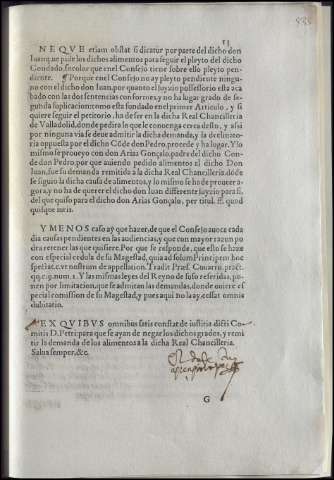 13
NEQVE etiam obstat si dicatur por parte del dicho don
Iuan, que pide los dichos alimentos para seguir el pleyto del dicho
Condado, so color que en el Consejo tiene sobre ello pleyto pen-
diente. ¶ Porque en el Consejo no ay pleyto pendiente ningu-
no con el dicho don Iuan, por quanto el juyzio possessorio esta aca
bado con las dos sentencias conformes, y no ha lugar grado de se-
gunda suplicacion: como esta fundado en el primer Articulo, y si
quiere seguir el petitorio, ha de ser en la dicha Real Chancilleria
de Valladolid, donde pedira lo que le conuenga cerca desto, y assi
por ninguna via se deue admitir la dicha demanda, y la declinato-
ria opuesta por el dicho Cōde don Pedro, procede y ha lugar. Y lo
mismo se proueyo con don Arias Gonçalo, padre del dicho Con-
de don Pedro, por que auiendo pedido alimentos el dicho Don
Iuan, fue su demanda remitida a la dicha Real Chancilleria: dōde
se siguio la dicha causa de alimentos, y lo mismo se ha de proueer a-
gora, y no ha de querer el dicho don Iuan differente juyzio para si,
del que quiso para don Arias Gonçalo, per titul. ff. quod
quisque iuris.
Y MENOS caso ay que hazer, de que el Consejo auoca cada
dia causas pendientes en las audiencias, y que con mayor razon po
dra retener las que quisiere. Por que se responde, que esto se haze
con especial cedula de su Magestad, quia ad solum Principem hoc
spectat, c. vt nostrum de appellation. Tradit Præs. Couarru. pract.
qq. c. 9. num. 1. Y las mismas leyes del Reyno de suso referidas, po-
nen por limitacion, que se admitan las demandas, donde ouiere es
pecial comission de su Magestad, y pues aqui no la ay, cessat omnis
dubitatio.
EX QVIBVS omnibus satis constat de iustitia dicti Co-
mitis D. Petri para que se ayan de negar los dichos grados, y remi
tir la demanda de los alimentos a la dicha Real Chancilleria.
Salua semper, &c.
G